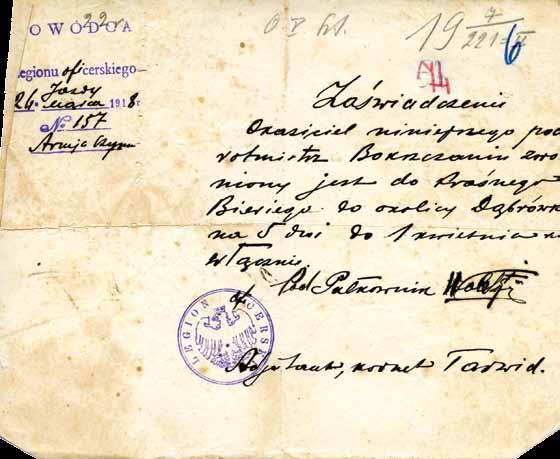 22
OWÓDCA
egionu oficerskiego
Jazdy
26 marca 1918 r
No 157
Armja Czynn
19 7/221=II
6
Zaświadczenie
Okaziciel niniejszego po
rotmistrz Bokszczanin zwo
niony jest do Kraśnego
Bieriego do okolicy Dąbrówk
na 5 dni do 1 kwietnia
włącznie
Pod Pułkownik
LEGION OFICERSK
Adjutant, kornet Tadwid.